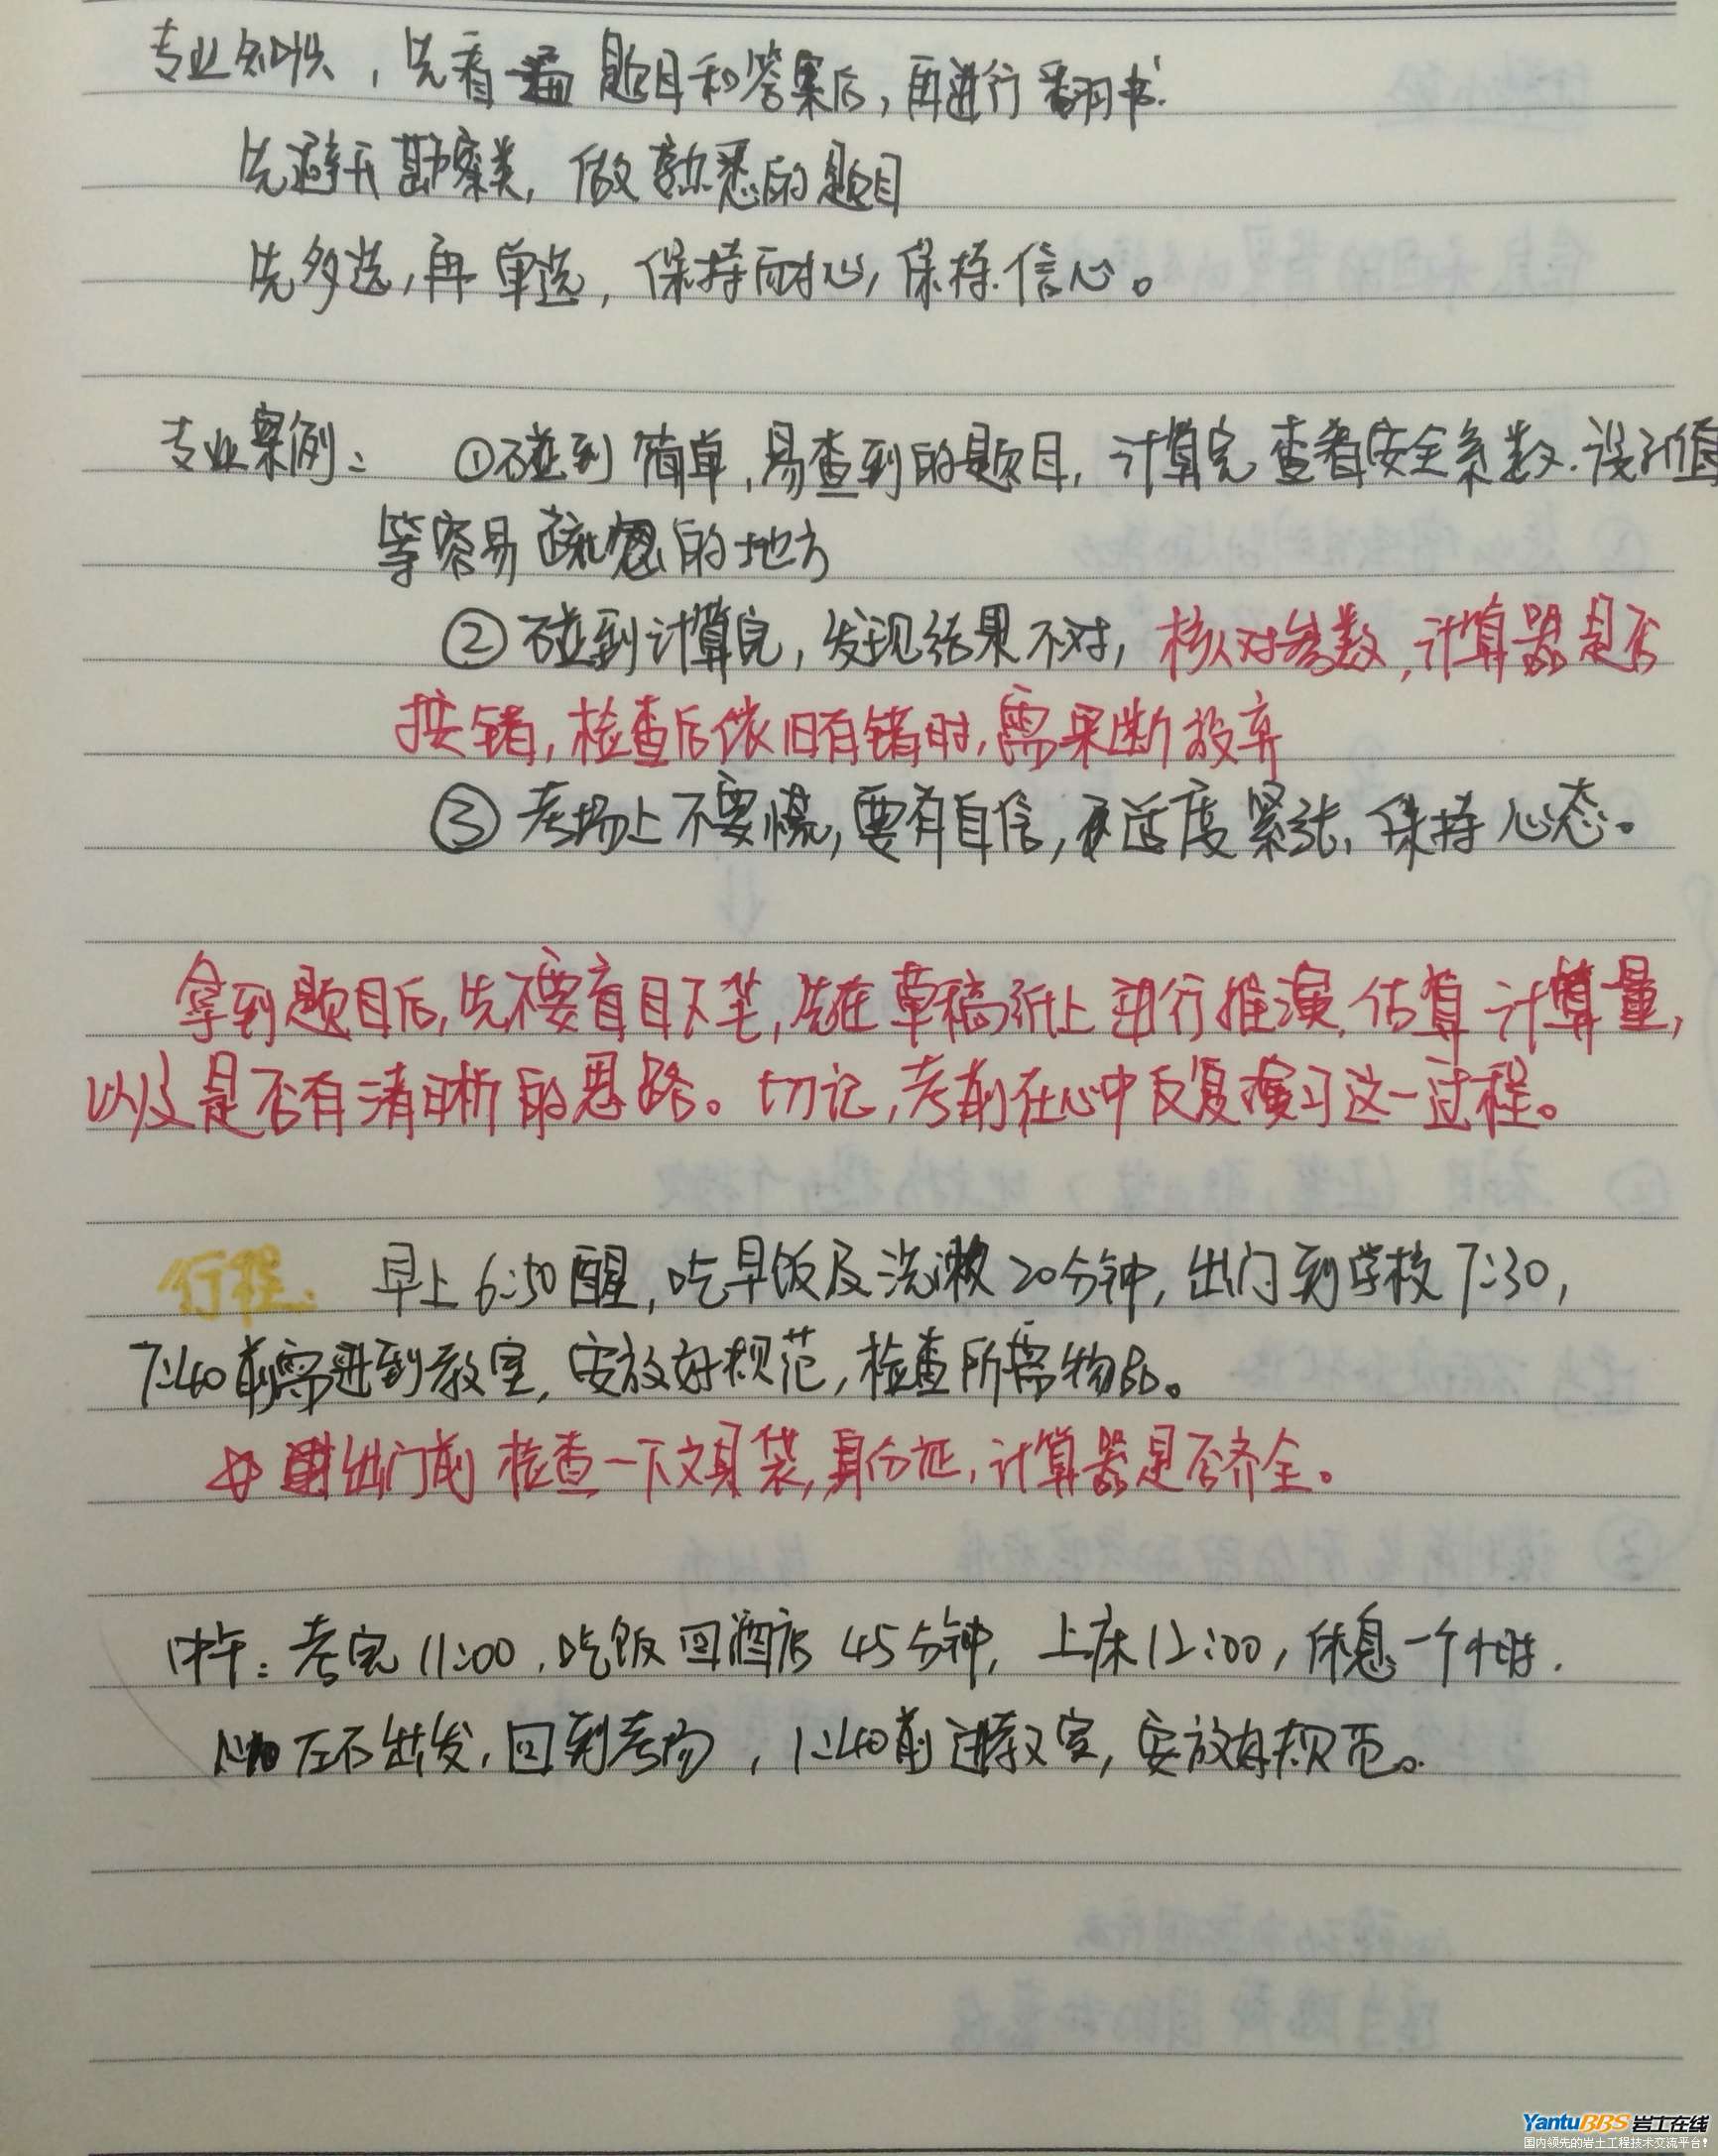 专业知识，先看一遍 题目和答案后，再进行翻书.
先避开勘察类，做熟悉的题目
先多选，再单选，保持耐心，保持信心。
专业案例： ①碰到简单，易查到的题目，计算完查看安全系数.设计值
等容易疏忽的地方
②碰到计算完，发现结果不对，核对参数，计算器是否
按错，检查后依旧有错时，需果断放弃
③考场上不要慌，要有自信，适度紧张，保持心态。
拿到题目后，先不要盲目下笔，先在草稿纸上进行推演，估算计算量，
以及是否有清晰的思路。切记，考前在心中反复演习这一过程。
行程： 早上6:50醒，吃早饭及洗漱20分钟，出门到学校7:30，
7:40前需进到教室，安放好规范，检查所需物品。
出门前 检查一下文具袋，身份证，计算器是否齐全。
中午：考完11:00，吃饭回酒店45分钟，上床12:00，休息一个小时.
左右出发，回到考场，1:40前进教室，安放好规范。
YantuBBS岩土在线
国内领先的岩土工程技术交流平台!